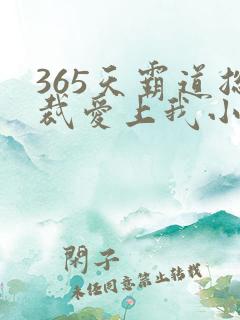 365天霸道总
裁爱上我小
閑子
未经同意禁止转载